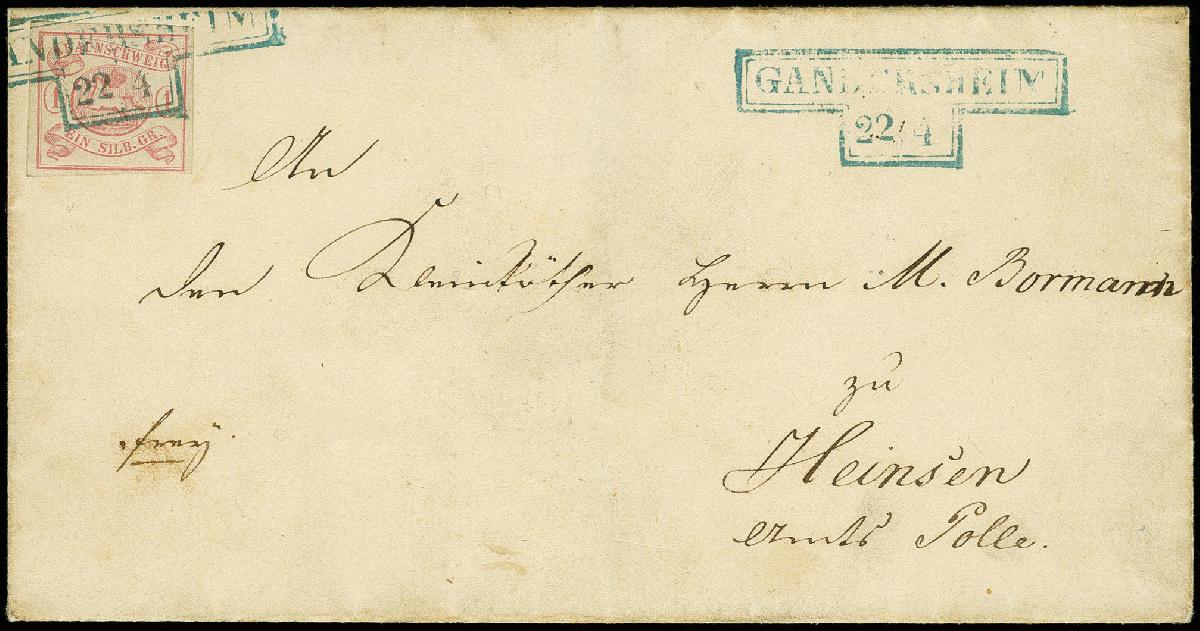 GANDERSHEIM
22/4
BRAUNSCHWEIG
1 1
EIN SILB. GR.
GANDERSHEIM
22/4
An
den Kleinköther Herrn M. Bormann
zu
Heinsen
Amts Polle.
frey.